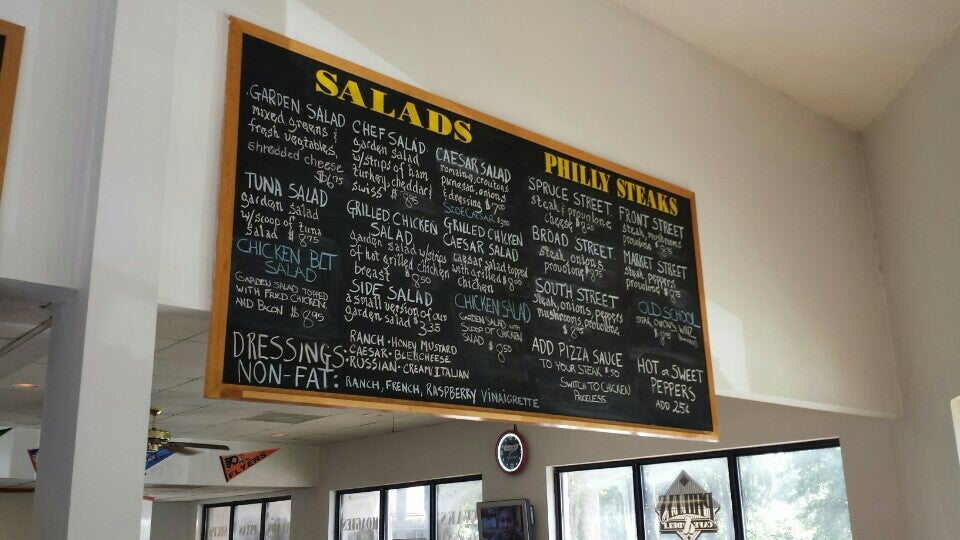 SALADS
GARDEN SALAD
mixed greens &
fresh vegetables,
shredded cheese
$6.75
TUNA SALAD
garden salad
w/scoop of tuna
salad $8.75
CHICKEN BLT
SALAD
GARDEN SALAD TOPPED
WITH FRIED CHICKEN,
AND BACON $8.95
CHEF SALAD
garden salad
w/strips of ham
turkey, cheddar &
swiss $8.95
GRILLED CHICKEN
SALAD
garden salad w/strips
of hot grilled chicken
breast $8.50
SIDE SALAD
a small version of our
garden salad $3.35
CAESAR SALAD
romaine, croutons
parmesan, onions
& dressing $7.00
SIDE CAESAR
GRILLED CHICKEN
CAESAR SALAD
caesar salad topped
with grilled
chicken
CHICKEN SALAD
GARDEN SALAD WITH
SCOOP OF CHICKEN
SALAD $8.50
DRESSINGS:
RANCH • HONEY MUSTARD
CAESAR • BLEU CHEESE
RUSSIAN • CREAM ITALIAN
NON-FAT: RANCH, FRENCH, RASPBERRY VINAIGRETTE
PHILLY STEAKS
SPRUCE STREET
steak & provolone
cheese
BROAD STREET
steak, onions &
provolone
SOUTH STREET
steak, onions, peppers
mushrooms, provolone
ADD PIZZA SAUCE
TO YOUR STEAK $.50
SWITCH TO CHICKEN
PRICELESS
FRONT STREET
steak, mushrooms
provolone
MARKET STREET
steak, peppers
provolone
OLD SCHOOL
STEAK, ONIONS, WHIZ
HOT OR SWEET
PEPPERS
ADD 25¢
FLYERS
SOUPS
PITAS
HOAGIES
STEAKS
CAFE & DELI